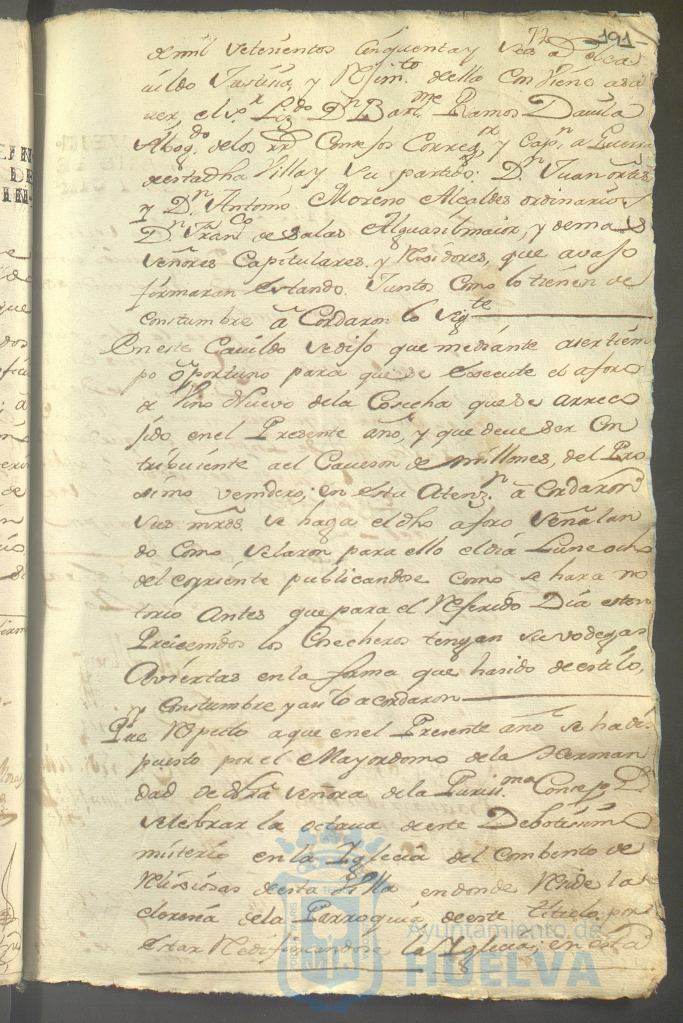 72 191
de mil setesientos cinquenta y seis a Clea
uildo Justisia, y Rejim.to della Conviene asa
uer, el s.r Liz.do D.n Bart.me Ramos Dauila
Abog.do de los rr.s Consejos Correg.r y Cap.n a Guerra
de esta dha Villa y su partido: D.n Juan ortis
y D.n Antonio Moreno Alcaldes ordinarios
D.n Fran.co de Salas Alguasil maior, y demas
Señores Capitulares, y Residores, que auajo
firmaran estando Juntos Como lo tienen de
Constumbre aCordaron lo sig.te
En este Cauildo se dijo que mediante aser tiem
po oportuno para que se execute el aforo
de Vino Nuevo dela Cosecha que se a rrecο
jido en el Presente año, y que deue ser Con
tribuiente a el Caueson de millones, del Pro
simo venidero; en esta Atenz.n aCordaron
sus mrds. se haga el dho aforo señalan
do Como señalaron para ello el dia Lune ocho
del corriente publicandose como se hara no
torio Antes que para el Referido Dia esten
Preuenidos los Cosecheros tengan sus vodegas
Auiertas en la forma que ha sido de estilo,
y Constumbre y asi lo acordaron
Que Respecto a que en el Presente año se ha dis
puesto por el Mayordomo de la Herman
dad de nra señora de la Puriss.ma Concep.n
selebrar la octaua de este Debotisimo
misterio en la Iglecia del Combento de
Relijiosas de esta Villa en donde Recide la
de la Parroquia de este titulo, por
estar Redificandose la Iglecia; en esta
Ayuntamiento de
HUELVA